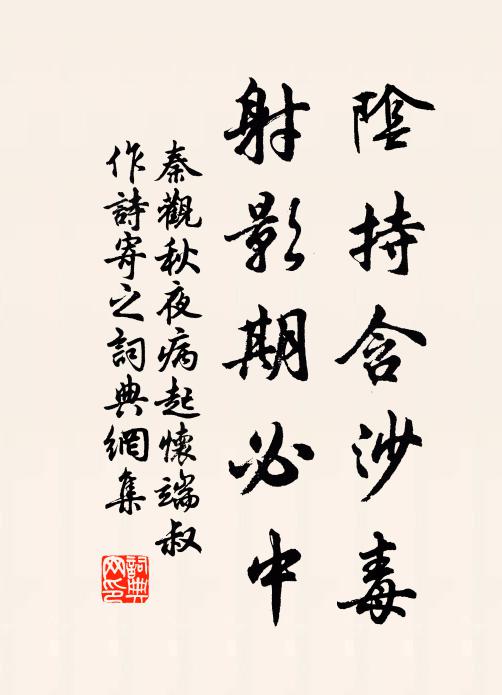 陰持含沙毒
射影期必中
秦觀秋夜病起懷端叔
作詩寄之詞典網集
詞典
网印